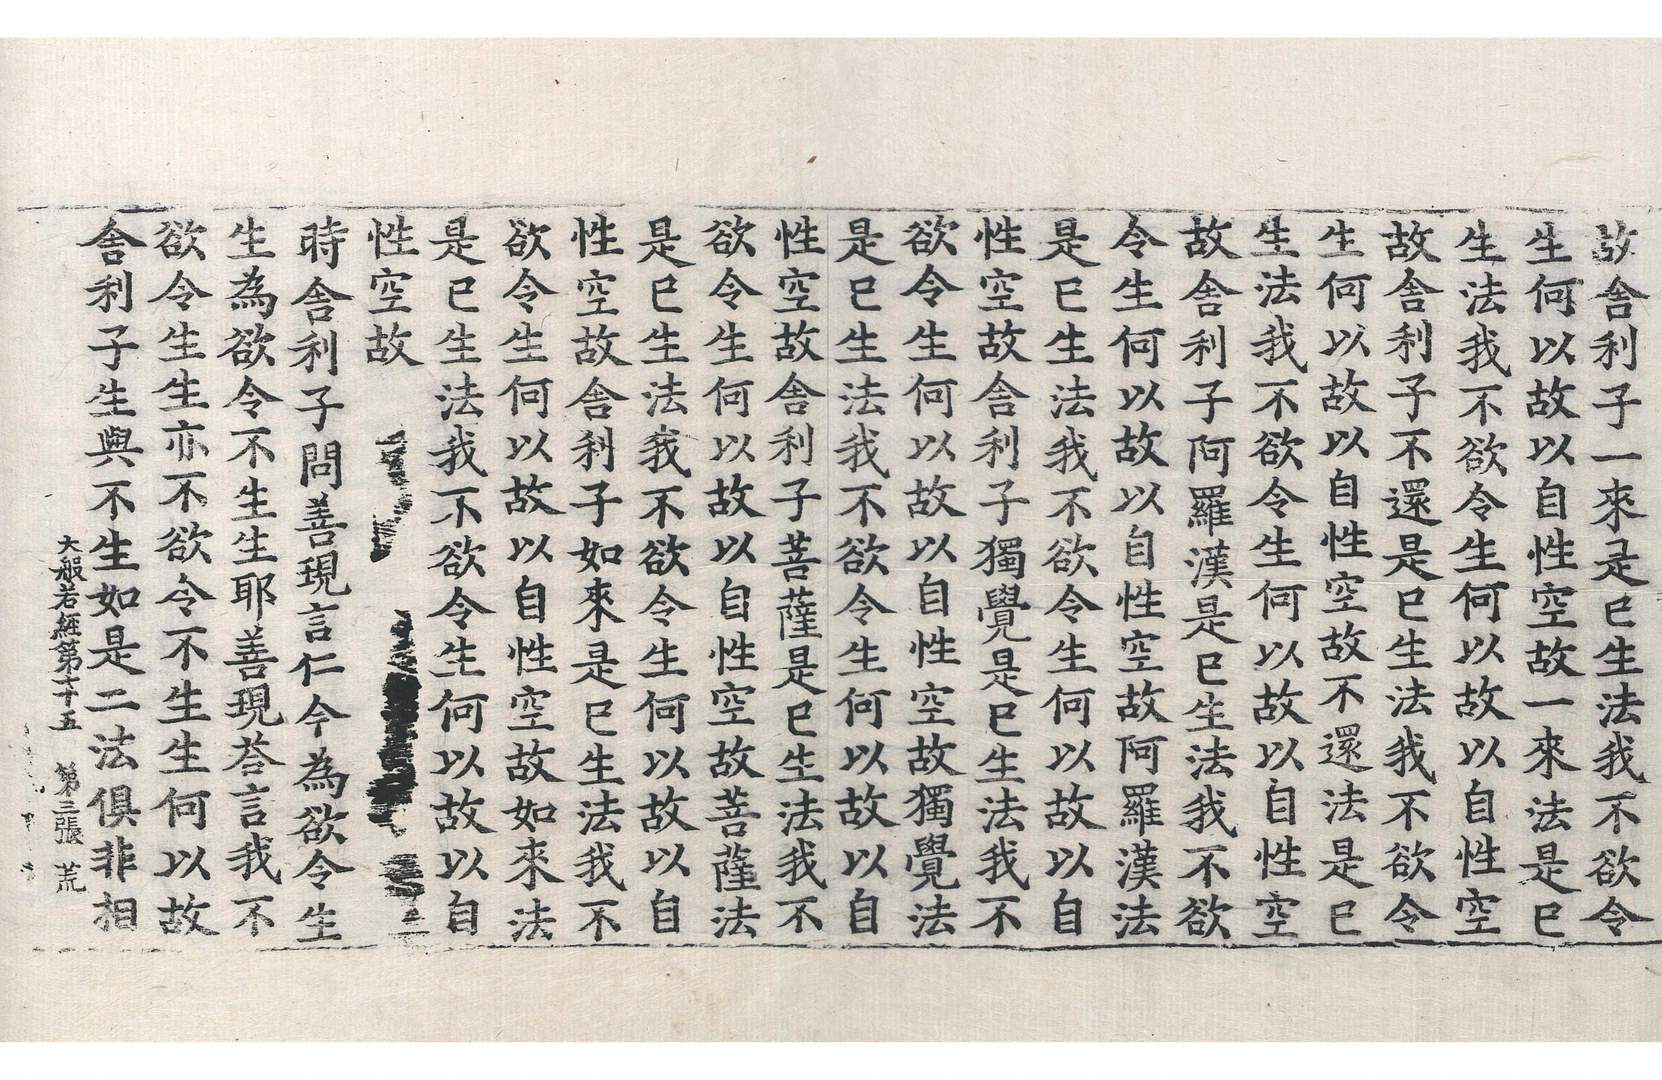 故舍利子一來是已生法我不欲令
生何以故以自性空故一來法是已
生法我不欲令生何以故以自性空
故舍利子不還是已生法我不欲令
生何以故以自性空故不還法是已
生法我不欲令生何以故以自性空
故舍利子阿羅漢是已生法我不欲
令生何以故以自性空故阿羅漢法
是已生法我不欲令生何以故以自
性空故舍利子獨覺是已生法我不
欲令生何以故以自性空故獨覺法
是已生法我不欲令生何以故以自
性空故舍利子菩薩是已生法我不
欲令生何以故以自性空故菩薩法
是已生法我不欲令生何以故以自
性空故舍利子如來是已生法我不
欲令生何以故以自性空故如來法
是已生法我不欲令生何以故以自
性空故
時舍利子問善現言仁今為欲令生
生為欲令不生生耶善現荅言我不
欲令生生亦不欲令不生生何以故
舍利子生與不生如是二法俱非相
大般若經第七十五 第三張 荒